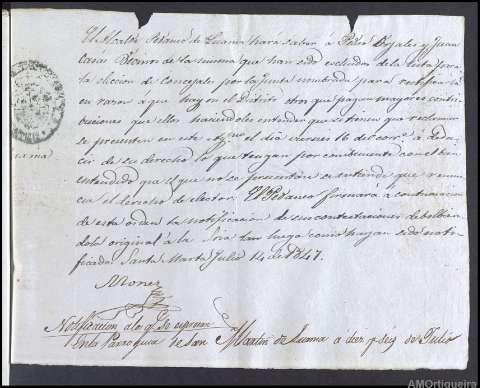 El Alcalde Pedaneo de Luama hará saber á Pedro Bojales y Juan
Casás Vecinos de la misma que han sido excluidos de la lista para
la elicion de Concejales por la Junta nombrada para rectificarla
en razon a que hay en el Distrito otros que pagan mayores contri
buciones que ellos haciendoles entender que si tienen que reclamar
se presenten en este Aytº el dia viernes 16 del corrte á dedu
cir de su derecho lo que tengan por conveniente con el bien
entendido que el que no se presentáre se entiende que renun
cia el derecho de elector. El Pedaneo firmará a continuacion
de esta orden la notificacion de sus contestaciones debolbien
dola original á la Sria tan luego como hayan sido notifi
ficados Santa Marta Julio 14 de 1847.
Notificacion a los qe Se espresan
En la Parroquia de San Martin de Luama á diez y seis de Julio
uama
AMOrtigueira